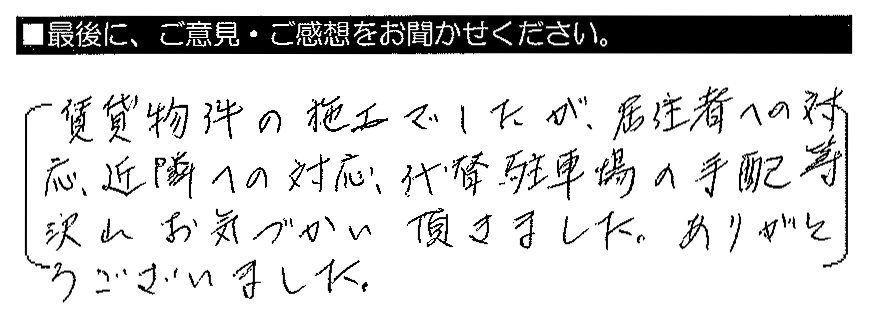 ■最後に、ご意見・ご感想をお聞かせください。
賃貸物件の施工でしたが、居住者への対
応、近隣への対応、代替駐車場の手配等
沢山お気づかい頂きました。ありがと
うございました。